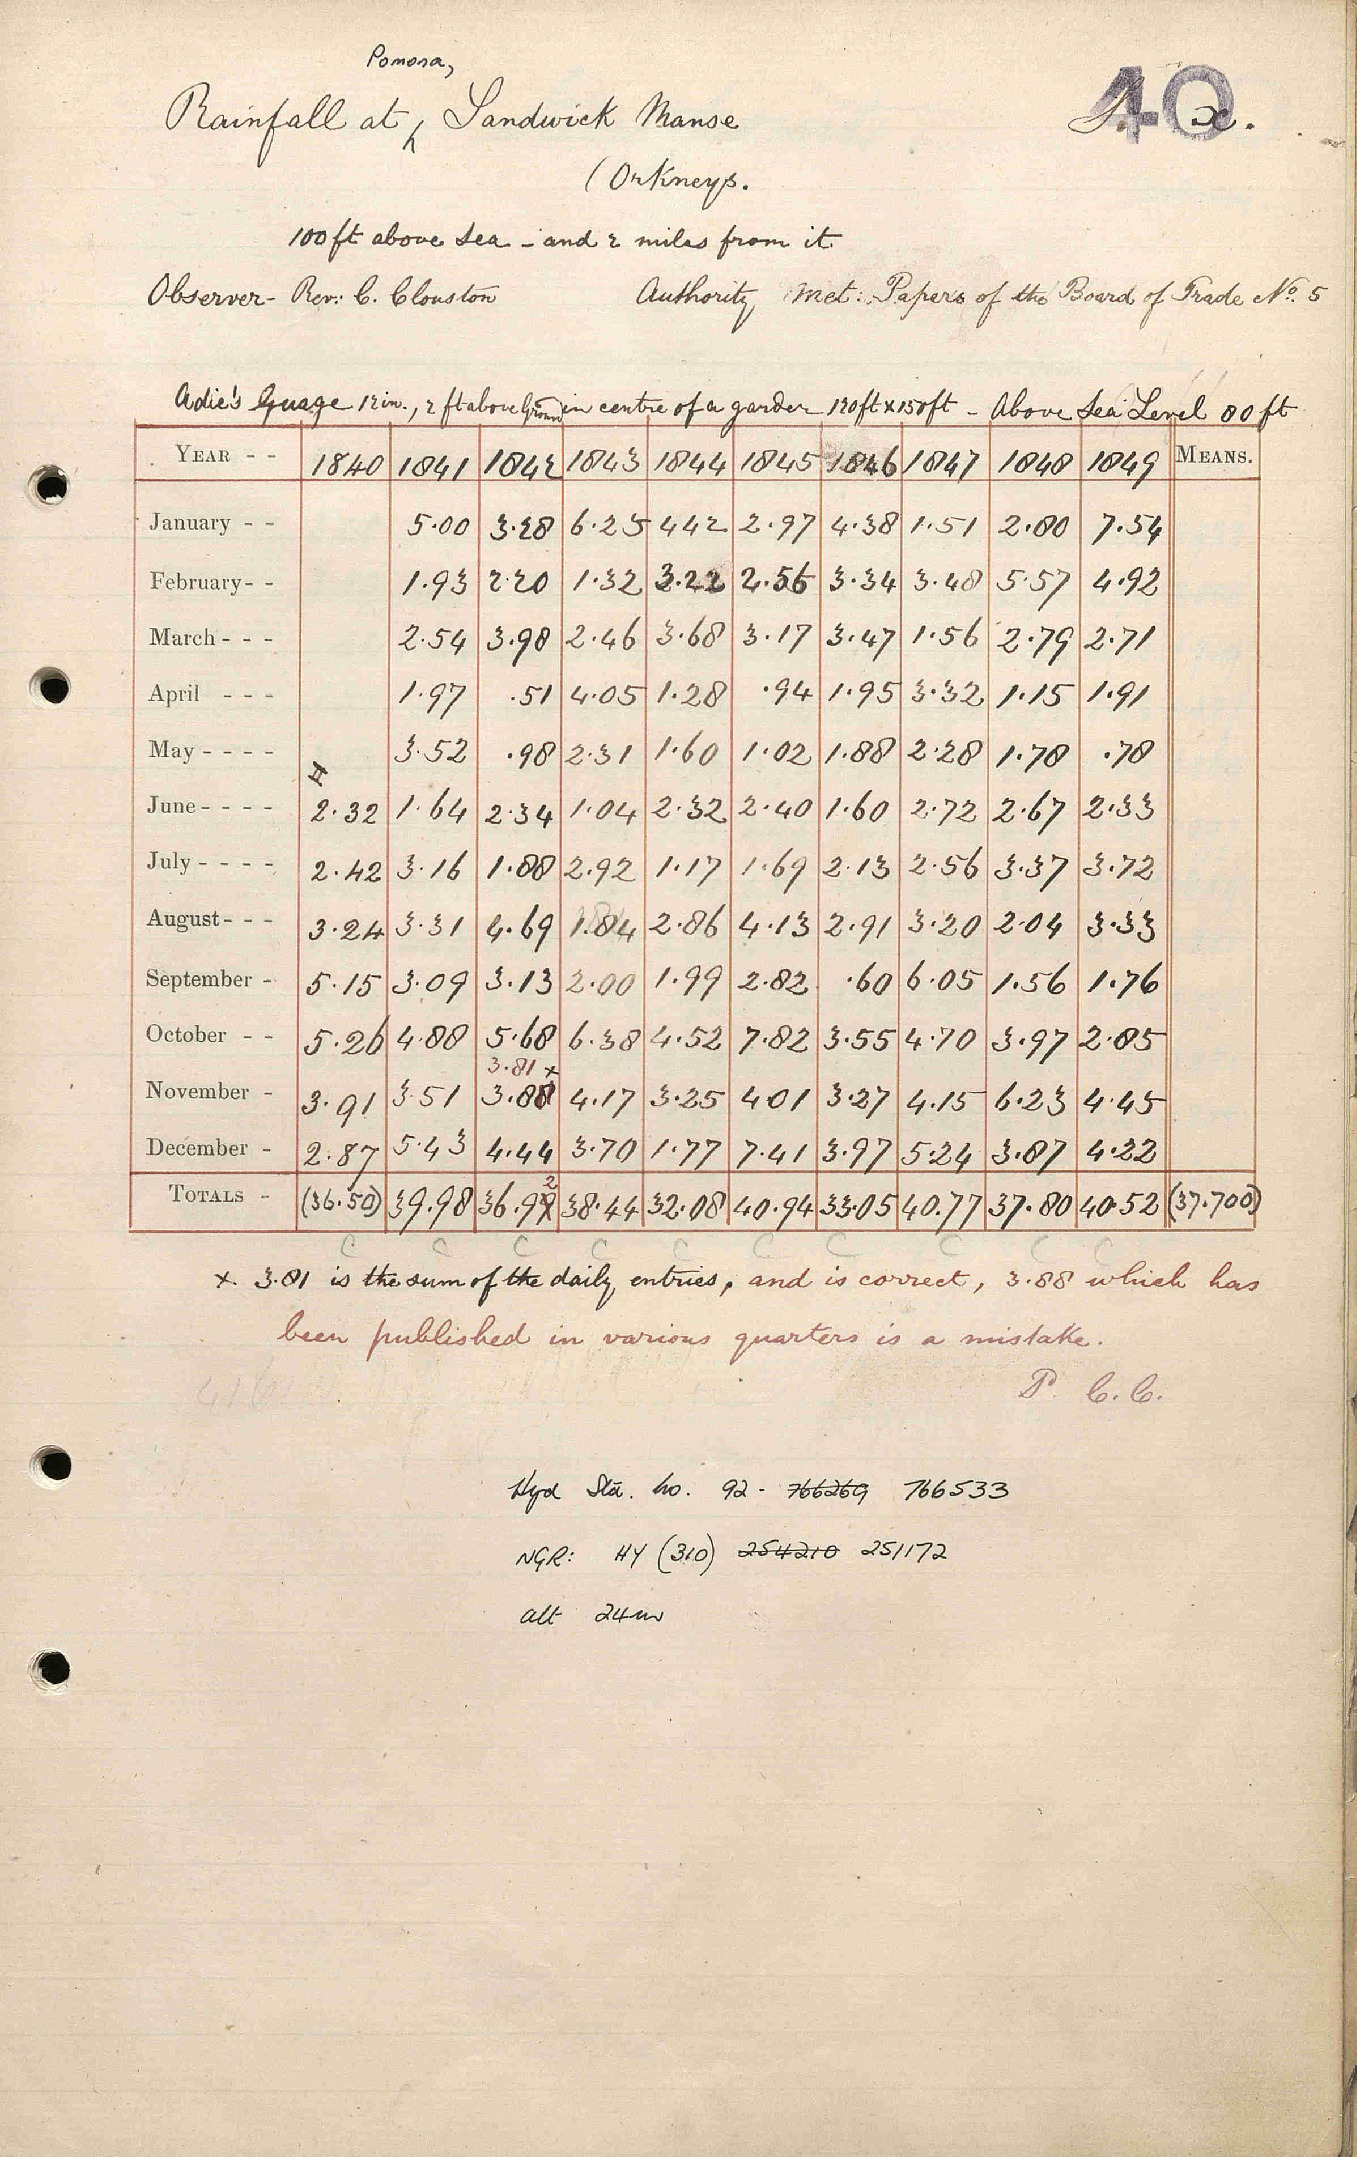 Pomona,
Rainfall at Sandwick Manse
40
(Orkneys.
100 ft above Sea - and 2 miles from it
Observer - Rev: C. Clouston Authority Met: Papers of the Board of Trade No. 5
Adie's Guage 12 in., 2 ft above Ground in centre of a garden 120 ft x 150 ft - Above Sea Level 80 ft
YEAR - - 1840 1841 1842 1843 1844 1845 1846 1847 1848 1849 MEANS.
January - - 5.00 3.28 6.25 4.42 2.97 4.38 1.51 2.80 7.54
February - - 1.93 2.20 1.32 3.22 2.56 3.34 3.48 5.57 4.92
March - - - 2.54 3.98 2.46 3.68 3.17 3.47 1.56 2.79 2.71
April - - - 1.97 .51 4.05 1.28 .94 1.95 3.32 1.15 1.91
May - - - - 3.52 .98 2.31 1.60 1.02 1.88 2.28 1.78 .78
June - - - - 2.32 1.64 2.34 1.04 2.32 2.40 1.60 2.72 2.67 2.33
July - - - - 2.42 3.16 1.88 2.92 1.17 1.69 2.13 2.56 3.37 3.72
August - - - 3.24 3.31 4.69 1.84 2.86 4.13 2.91 3.20 2.04 3.33
September - 5.15 3.09 3.13 2.00 1.99 2.82 .60 6.05 1.56 1.76
October - - 5.26 4.88 5.68 6.38 4.52 7.82 3.55 4.70 3.97 2.85
3.81 x
November - 3.91 3.51 3.88 4.17 3.25 4.01 3.27 4.15 6.23 4.45
December - 2.87 5.43 4.44 3.70 1.77 7.41 3.97 5.24 3.87 4.22
TOTALS - (36.50) 39.98 36.92 38.44 32.08 40.94 33.05 40.77 37.80 40.52 (37.700)
C C C C C C C C C C
x. 3.81 is the sum of the daily entries, and is correct, 3.88 which has
been published in various quarters is a mistake.
P. C. C.
Hyd Sta. no. 92 - 766269 766533
NGR: HY (310) 254210 251172
alt 24m